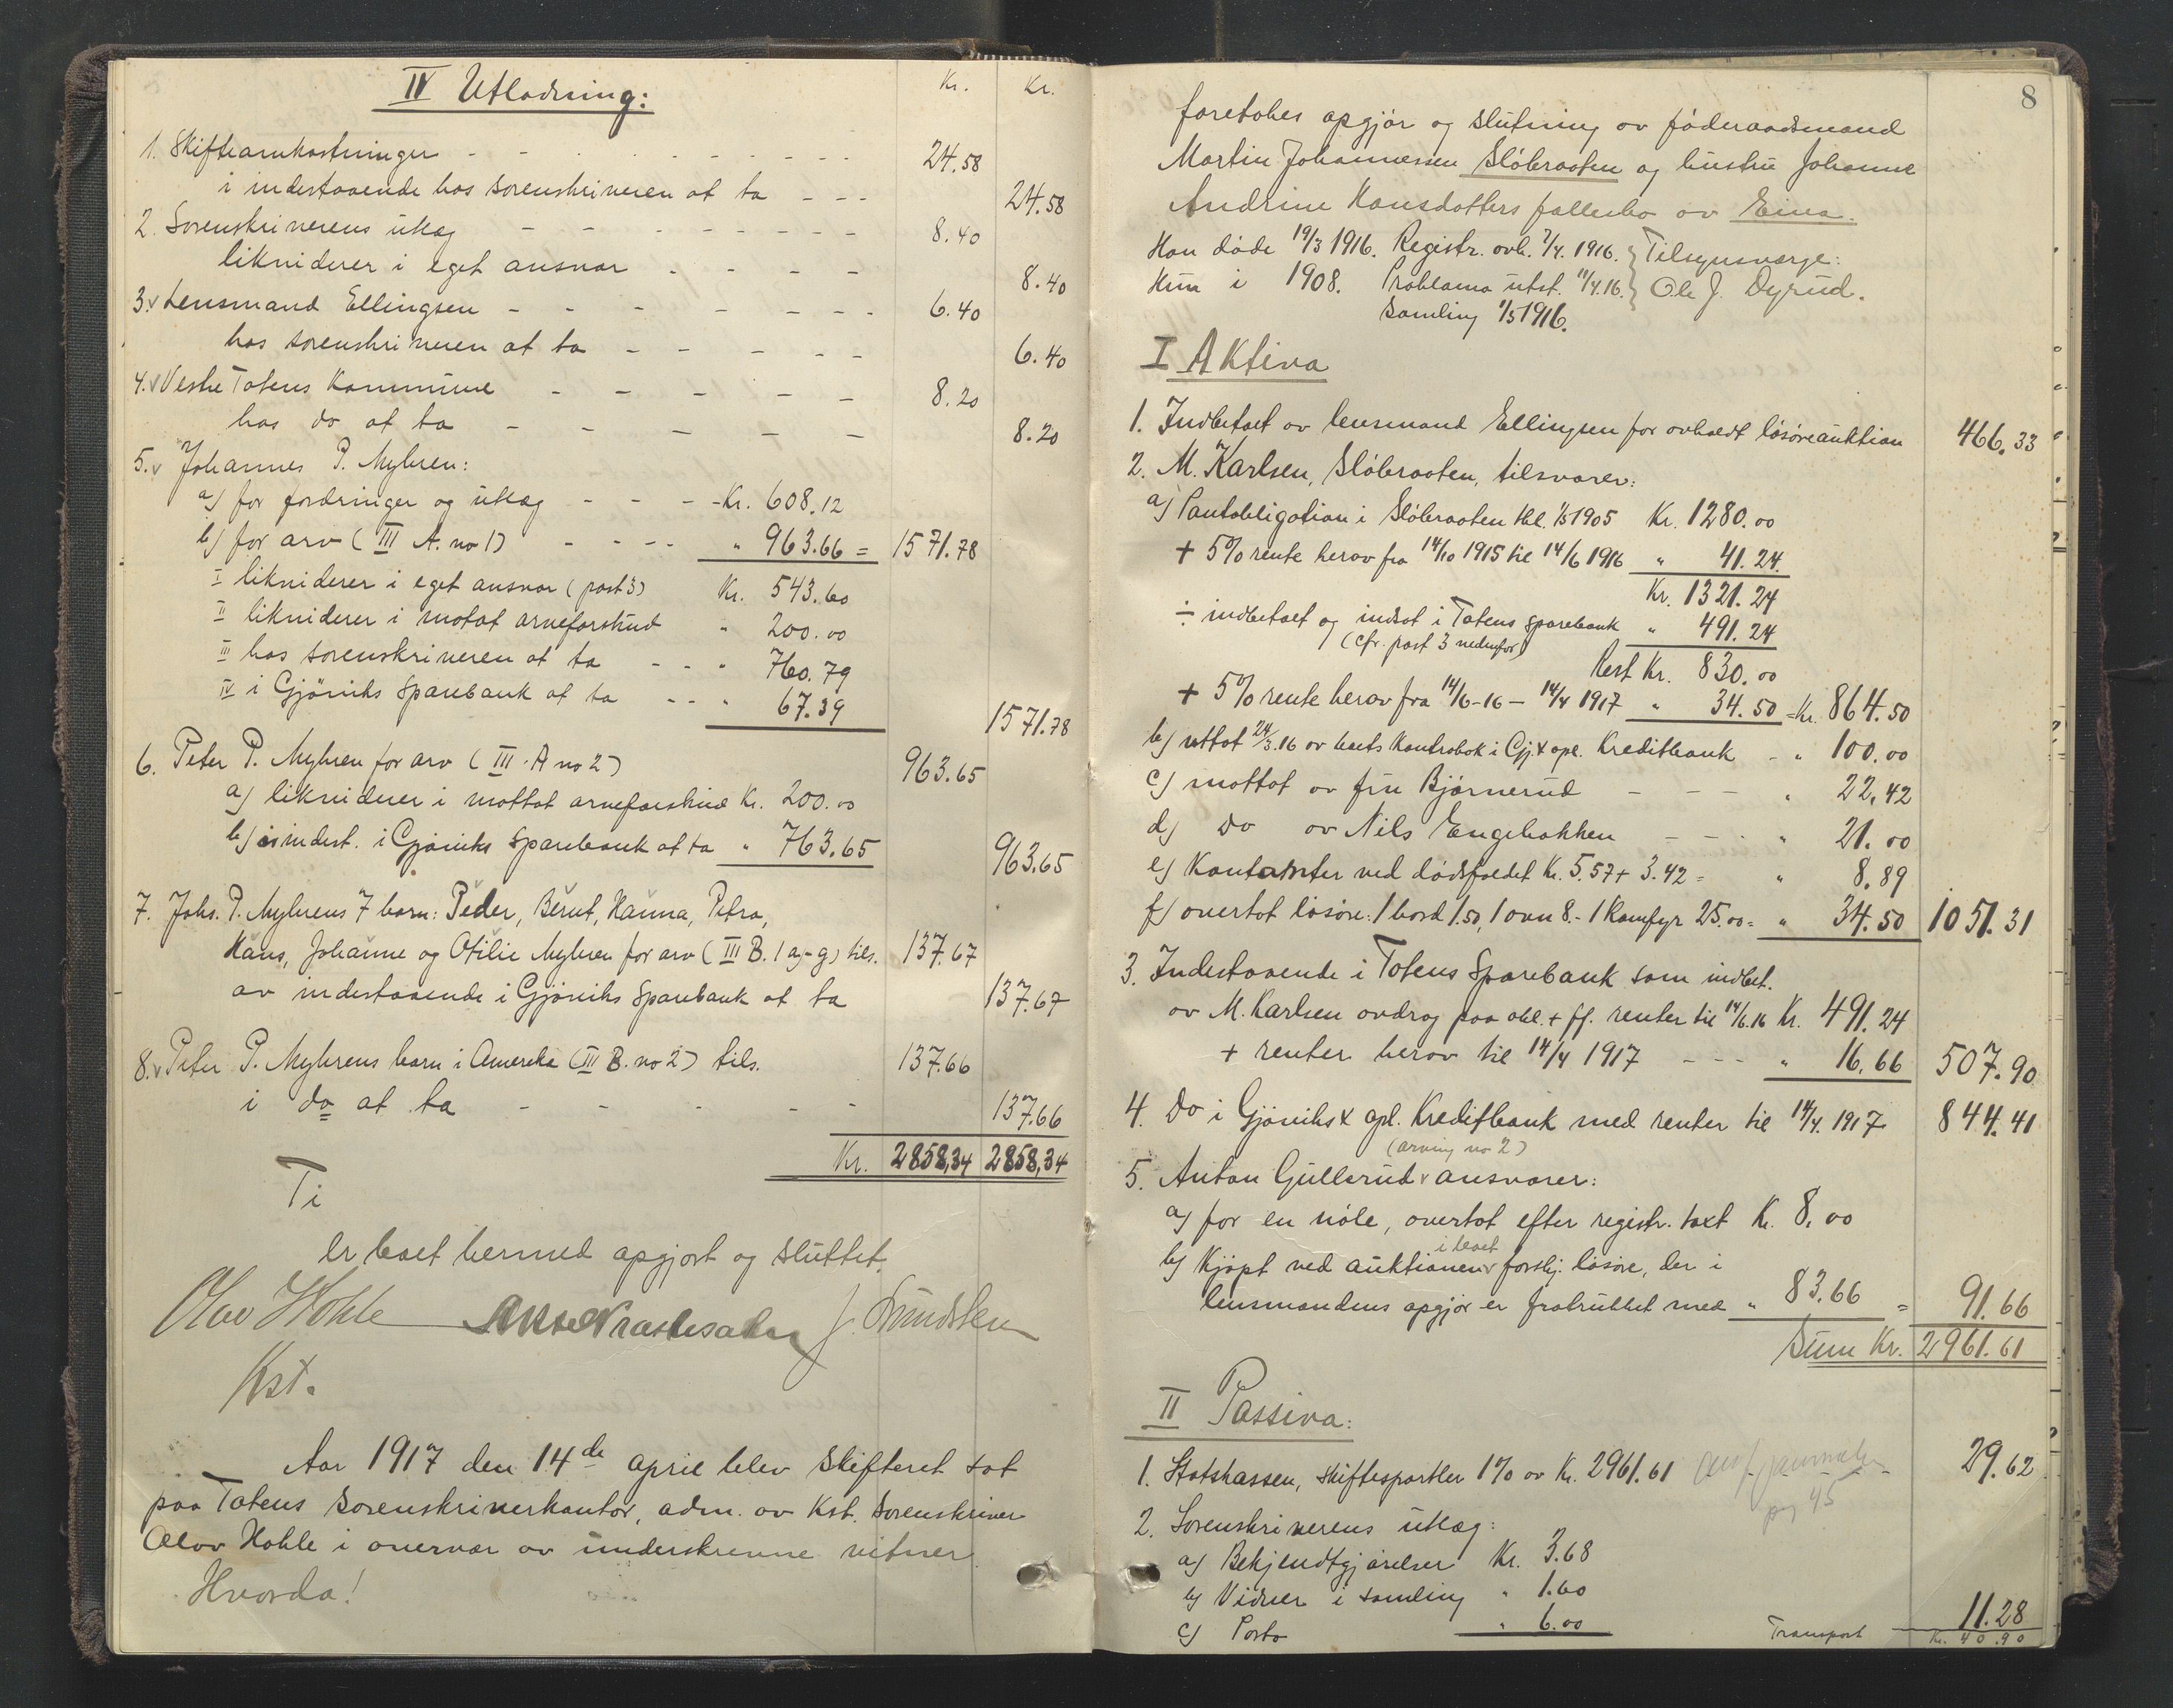 IV Utlodning:
Kr. Kr.
1. Skifteomkostninger - - - - - - - - 24.58
i indestaaende hos sorenskriveren at ta - - - 24.58
2. Sorenskriverens utlæg - - - - - - - - 8.40
likviderer i eget ansvar - - - - 8.40
3.v Lensmand Ellingsen - - - - - - - 6.40
hos sorenskriveren at ta - - - - - 6.40
4.v Vestre Totens Kommune - - - - - 8.20
hos do at ta - - - - - 8.20
5.v Johannes P. Myhren:
a) for fordringer og utlæg - - - - Kr. 608.12
b) for arv (III A. no 1) - - - - " 963.66 = 1571.78
I likviderer i eget ansvar (post 3) Kr. 543.60
II likviderer i motat arveforskud " 200.00
III hos sorenskriveren at ta - - " 760.79
IV i Gjøviks Sparebank at ta - - " 67.39 1571.78
6. Peter P. Myhren for arv (III. A no 2) 963.65
a) likviderer i mottat arveforskud Kr. 200.00
b) indest. i Gjøviks Sparebank at ta " 763.65 963.65
7. Johs. P. Myhrens 7 barn: Peder, Bernt, Hanna, Petra,
Hans, Johanne og Otilie Myhren for arv (III B. 1 a-g) tils. 137.67
av indestaaende i Gjøviks Sparebank at ta 137.67
8.v Peter P. Myhrens barn i Amerika (III B. no 2) tils. 137.66
i do at ta - - - - - 137.66
Kr. 2858,34 2858,34
Ti
er boet hermed opgjort og sluttet.
Olav Hohle J. Lundsten
Kst.
Aar 1917 den 14de april blev Skifteret sat
paa Totens Sorenskriverkontor, adm. av Kst. Sorenskriver
Olav Hohle i overvær av underskrevne vitner.
Hvorda!
8
foretokes opgjør og slutning av føderaadsmand
Martin Johannessen Sløbraaten og hustru Johanne
Andrine Hansdatters fællesbo av Eina.
Han døde 19/3 1916. Registr. avh. 7/4. 1916. } Tilsynsværge:
Hun i 1908. Proklama utst. 11/4.16. } Ole J. Dyrud.
Samling 1/5 1916.
I Aktiva
1. Indbetalt av lensmand Ellingsen for avholdt løsøreauktion 466.33
2. M. Karlsen, Sløbraaten, tilsvarer:
a) Pantobligation i Sløbraaten tbl. 1/5 1905 Kr. 1280.00
+ 5% rente herav fra 14/10 1915 til 14/6 1916 " 41.24.
Kr. 1321.24
÷ indbetalt og indsat i Totens Sparebank " 491.24
(cfr. post 3 nedenfor)
Rest Kr. 830.00
+ 5% rente herav fra 14/6-16 - 14/4 1917 " 34.50 = Kr. 864.50
b) uttat 24/3.16 av boets Kontrabok i Gj. & opl. Kreditbank - " 100.00
c) mottat av fru Bjørnerud - - - " 22.42
d) do av Nils Engebakken - - - " 21.00
e) Kontanter ved dødsfaldet Kr. 5.57 + 3.42 = " 8.89
f) overtat løsøre: 1 bord 1.50, 1 ovn 8.- 1 Komfyr 25.00 = " 34.50 1051.31
3. Indestaaende i Totens Sparebank som indbet.
av M. Karlsen avdrag paa obl. + ff. renter til 14/6.16 Kr. 491.24
+ renter herav til 14/4 1917 - - - " 16.66 507.90
4. Do i Gjøviks & opl. Kreditbank med renter til 14/4. 1917 844.41
(arving no 2)
5. Anton Gullerud v ansvarer:
a) for en , overtat efter registr. taxt Kr. 8.00
i boet
b) Kjøpt ved auktionen v forskj. løsøre, der i
lensmandens opgjør er fratrukket med " 83.66 = 91.66
Sum Kr. 2961.61
II Passiva:
1. Statskassen, skiftesportler 1% av Kr. 2961.61 29.62
pg 45
2. Sorenskriverens utlæg:
a) Bekjendtgjørelser Kr. 3.68
b) Vidner i samling " 1.60
c) Porto " 6.00 11.28
Transport Kr. 40.90